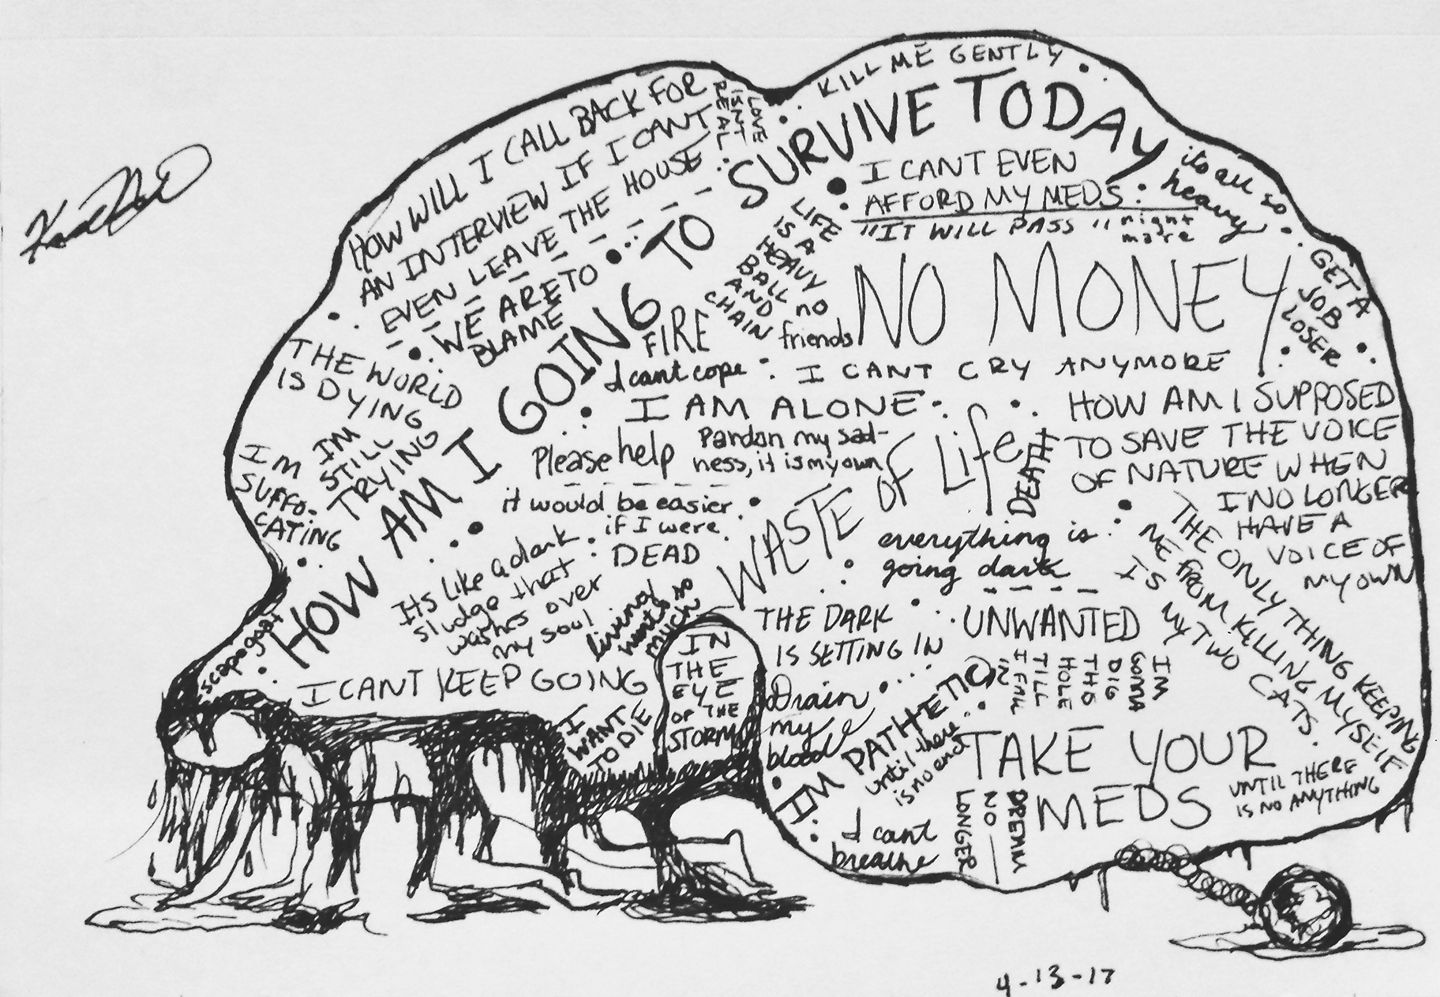 KILL ME GENTLY
HOW WILL I CALL BACK FOR
AN INTERVIEW IF I CANT
EVEN LEAVE THE HOUSE
LOVE
ISNT
REAL
HOW AM I GOING TO SURVIVE TODAY
I CANT EVEN
AFFORD MY MEDS
its all so
heavy
"IT WILL PASS"
night
mare
LIFE
IS A
HEAVY
BALL
AND
CHAIN
WE ARE TO
BLAME
FIRE
no
friends
NO MONEY
GET A
JOB
LOSER
THE WORLD
IS DYING
IM
STILL
TRYING
I cant cope
I CANT CRY ANYMORE
I AM ALONE
HOW AM I SUPPOSED
TO SAVE THE VOICE
OF NATURE WHEN
I NO LONGER
HAVE A
VOICE OF
MY OWN
IM
SUFFO-
CATING
Please help
Pardon my sad-
ness, it is my own
WASTE OF Life
DEATH
it would be easier
if I were
DEAD
everything is
going dark
Its like a dark
sludge that
washes over
my soul
living
hurts so
much
THE ONLY THING KEEPING
ME FROM KILLING MYSELF
IS MY TWO CATS.
scapegoat
I CANT KEEP GOING
IN
THE
EYE
OF THE
STORM
THE DARK
IS SETTING IN
UNWANTED
IM
GONNA
DIG
THIS
HOLE
TILL
I FALL
IN
I
WANT
TO DIE
Drain
my
blood
IM PATHETIC
until there
is no end
TAKE YOUR
MEDS
UNTIL THERE
IS NO ANYTHING
I cant
breathe
DREAM
NO
LONGER
4-13-17